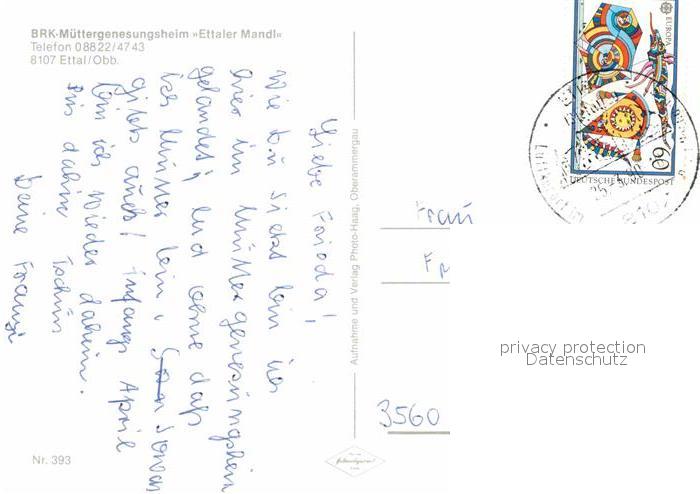 BRK-Müttergenesungsheim »Ettaler Mandl«
Telefon 08822/4743
8107 Ettal/Obb.
Liebe Frieda!
Wie Du siehst bin ich
hier im Müttergenesungsheim
gelandet, und ohne daß
ich Mutter bin,
gibts auch! Anfangs April
bin ich wieder daheim.
Bis dahin Tschüs
Deine Franzi
Nr. 393
Aufnahme und Verlag Photo-Haag, Oberammergau
Frau
Fr
3560
EUROPA
60
DEUTSCHE BUNDESPOST
Luftkurort im
8107
privacy protection
Datenschutz